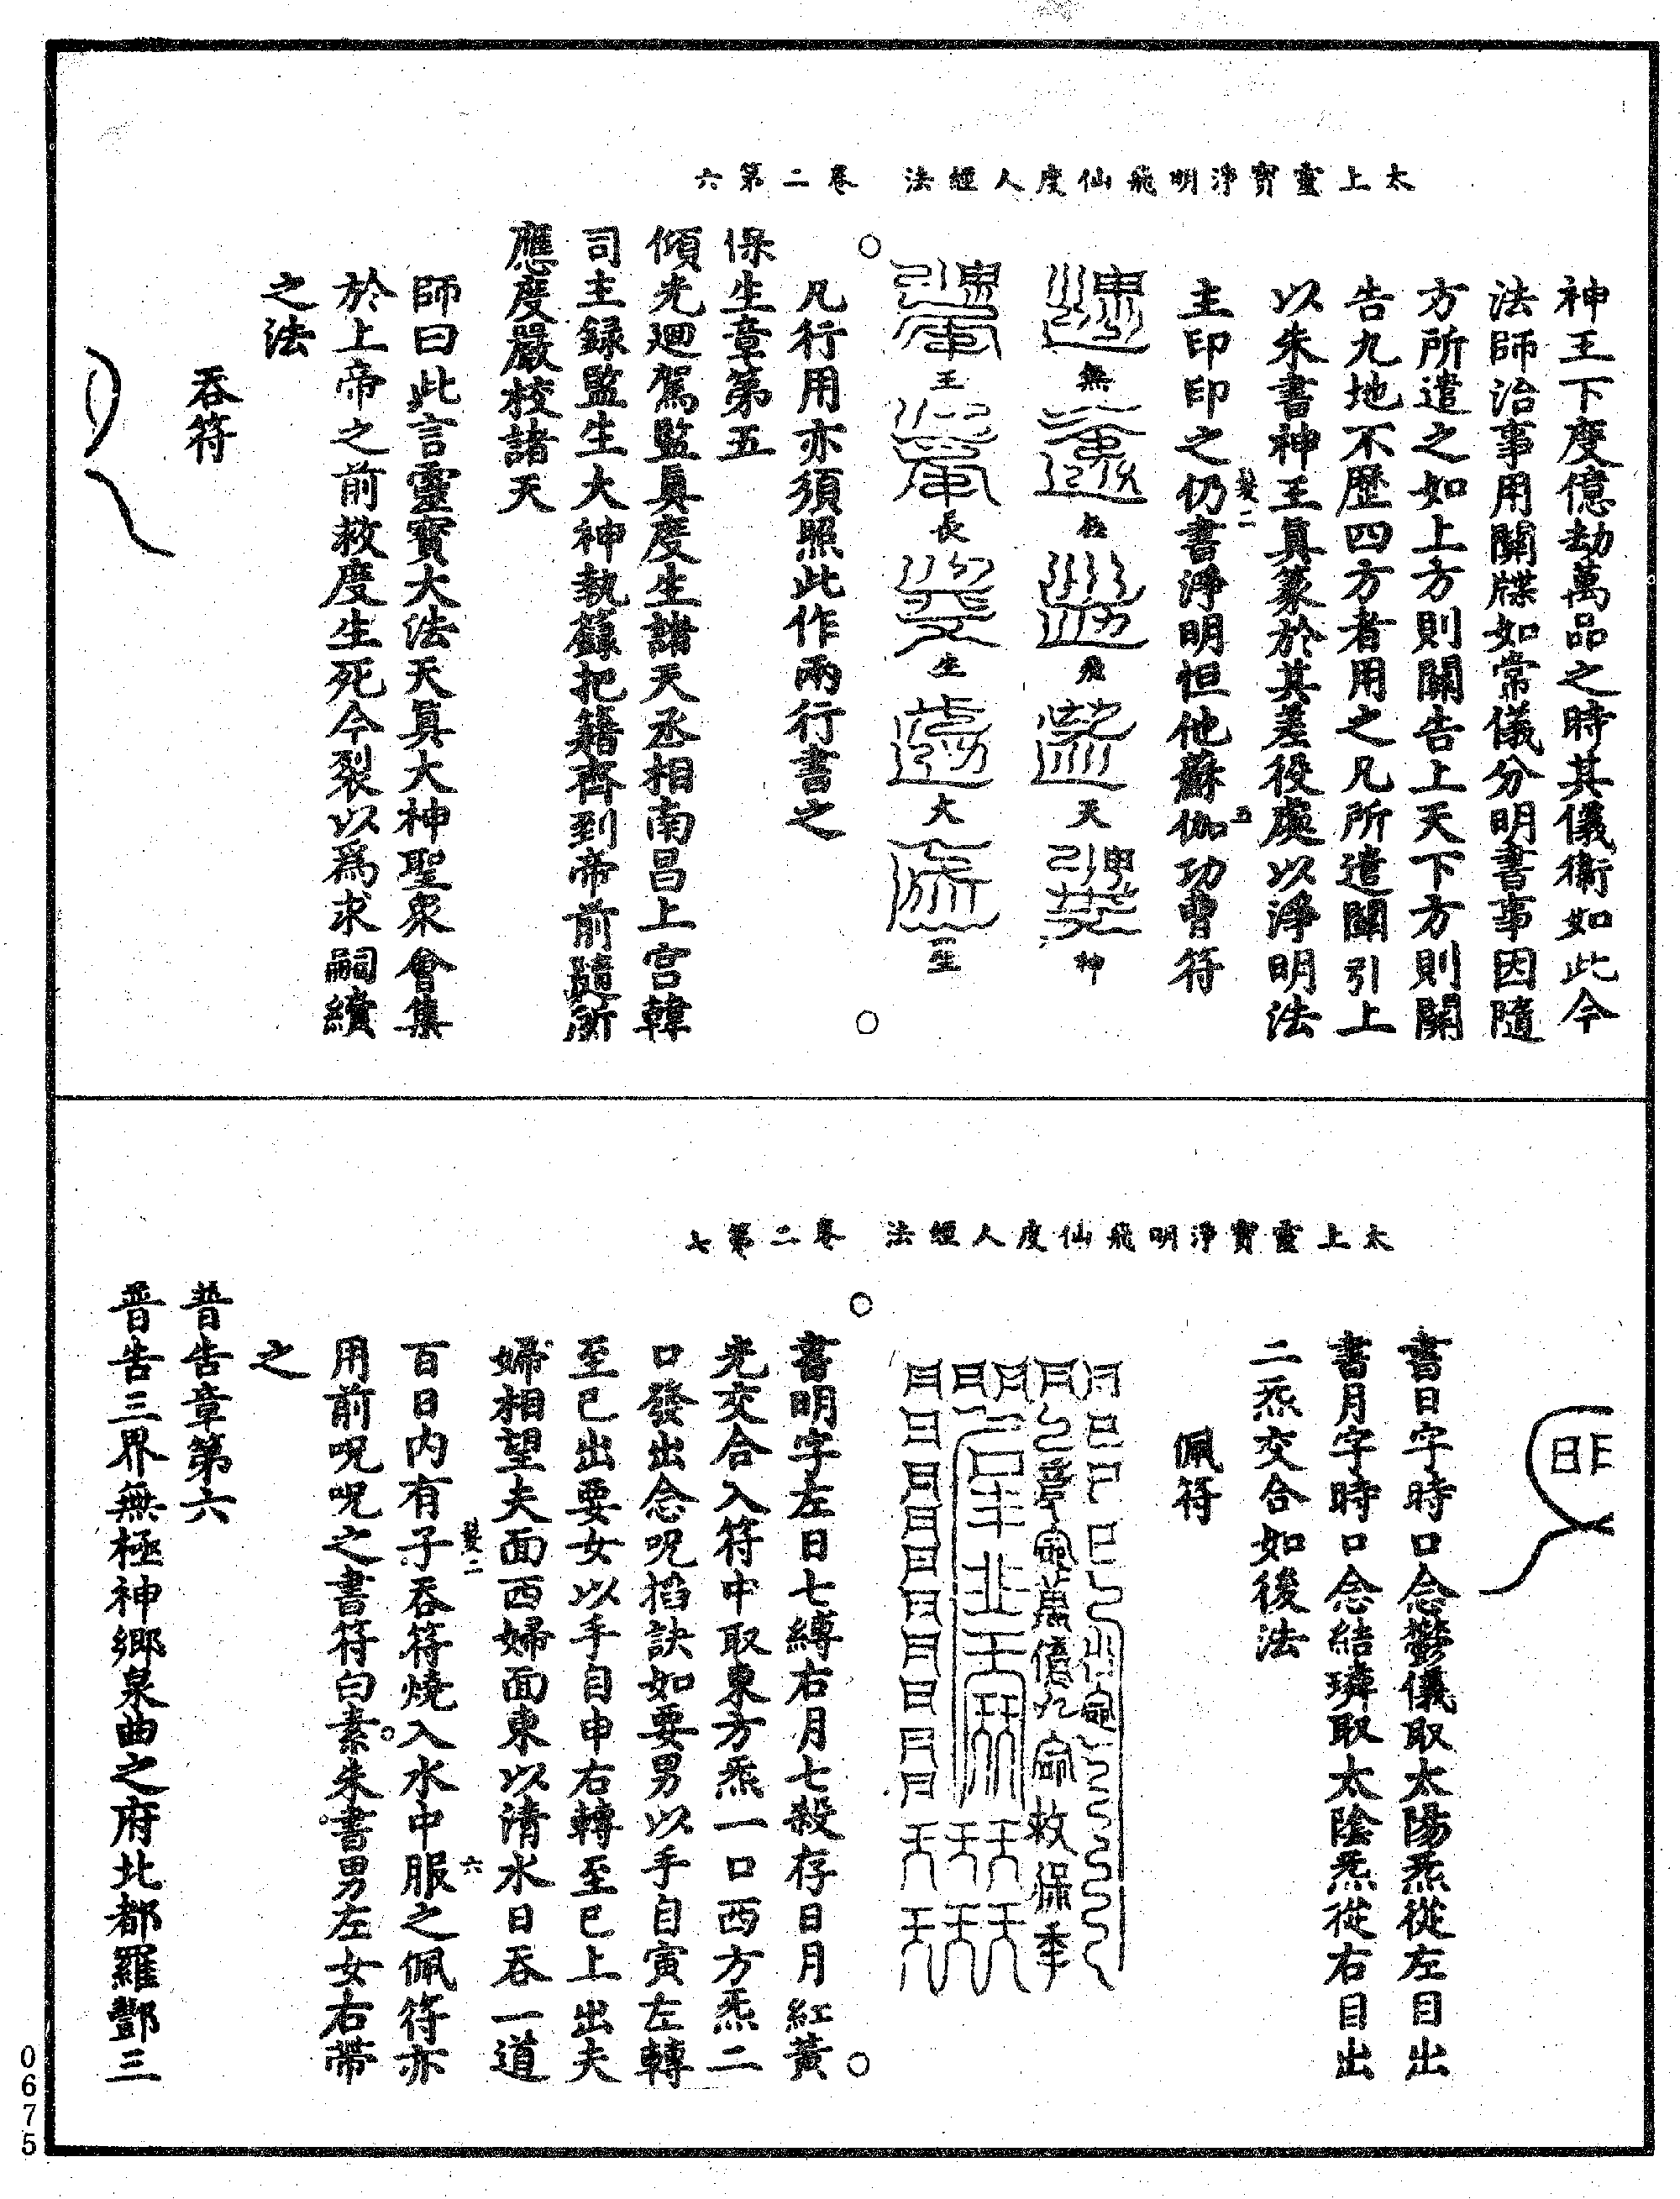 太上靈寶淨明飛仙度人經法　卷二第六
神王下度億劫萬品之時其儀衛如此今
法師治事用關牒如常儀分明書事因隨
方所遣之如上方則關告上天下方則關
告九地不歷四方者用之凡所遣關引上
以朱書神王真篆於其差役處以淨明法
主印印之仍書淨明怛他酥伽功曹符
髮二
五
無
飛
天
神
王
長
生
大
聖
凡行用亦須照此作兩行書之
保生章第五
傾光迴駕監真度生諸天丞相南昌上宮韓
司主錄監生大神執籙把籍齊到帝前隨所
應度嚴校諸天
師曰此言靈寶大法天真大神聖衆會集
於上帝之前救度生死今裂以爲求嗣續
之法
吞符
太上靈寶淨明飛仙度人經法　卷二第七
書日字時口念鬱儀取太陽炁從左目出
書月字時口念結璘取太陰炁從右目出
二炁交合如後法
佩符
書明字左日七縛右月七殺存日月紅黃
光交合入符中取東方炁一口西方炁二
口發出念呪掐訣如要男以手自寅左轉
至巳出要女以手自申右轉至巳上出夫
婦相望夫面西婦面東以清水日吞一道
髮二
六
百日內有子吞符燒入水中服之佩符亦
用前呪呪之書符白素朱書男左女右帶
之
普告章第六
普告三界無極神鄉泉曲之府北都羅酆三
0675